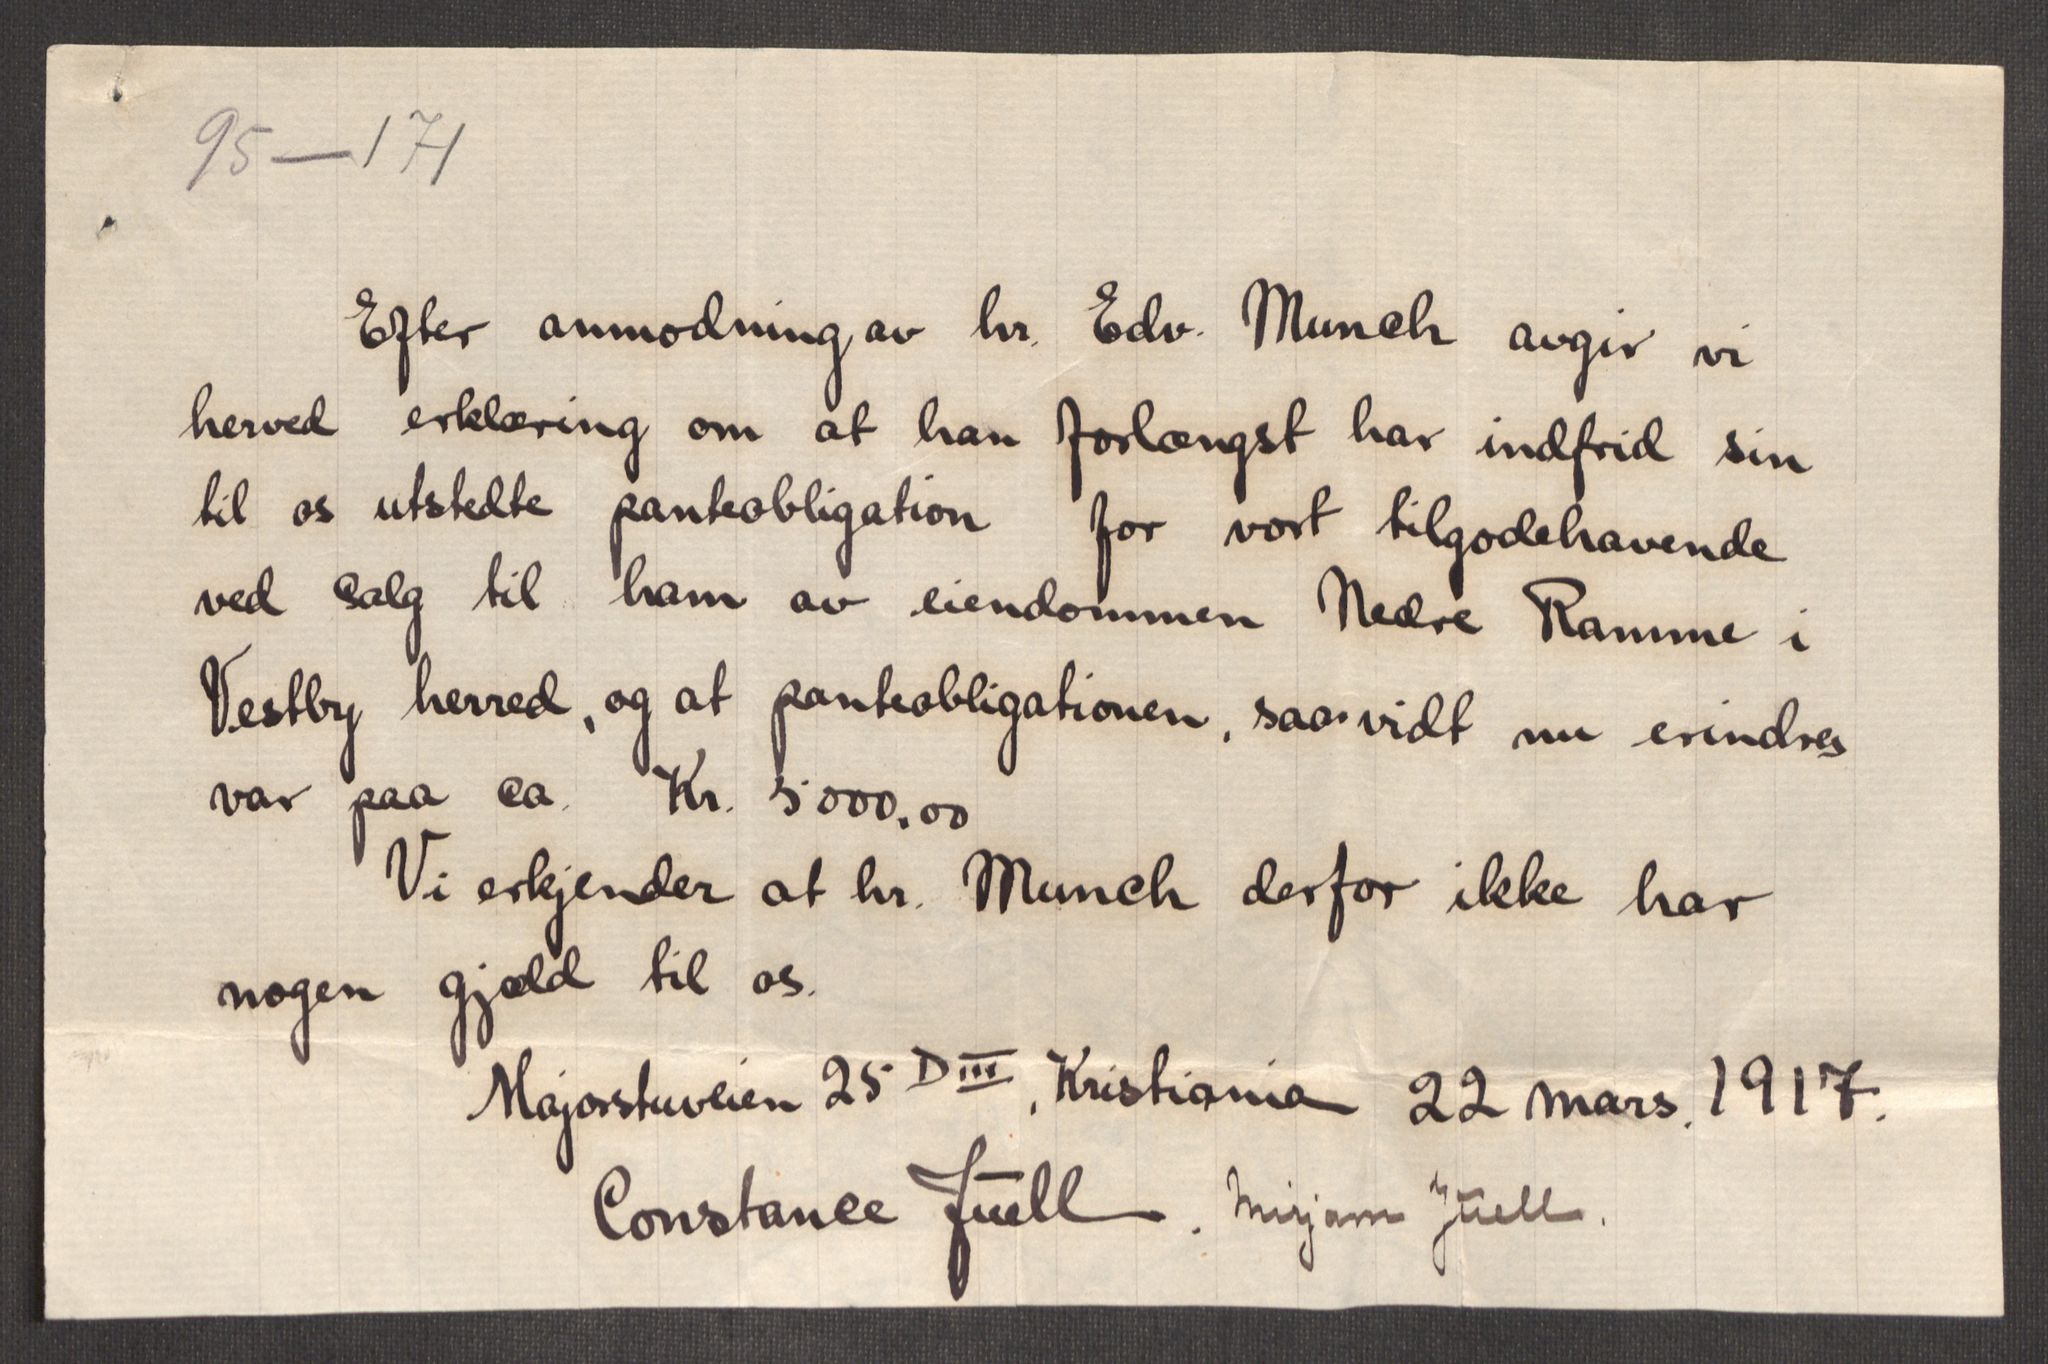 95—171
Efter anmodning av hr. Edv. Munch avgir vi
herved erklæring om at han forlængst har indfrid sin
til os utstedte panteobligation for vort tilgodehavende
ved salg til ham av eiendommen Nedre Ramme i
Vestby herred, og at panteobligationen, saavidt nu erindres
var paa ca. Kr. 5000.00
Vi erkjender at hr. Munch derfor ikke har
nogen gjæld til os.
Majorstuveien 25 D III, Kristiania 22 mars. 1917.
Constance Juell. Mirjam Juell.